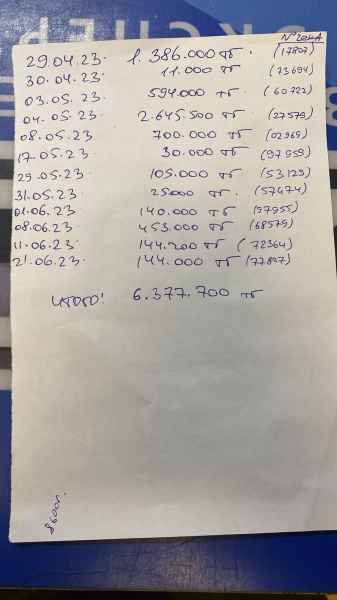 N° чека
29.04.23. 1.386.000 тг. (17807)
30.04.23 11.000 тг (73694)
03.05.23 594.000 тг. (60722)
04.05.23 2.645.500 тг (27579)
08.05.23 700.000 тг (02969)
17.05.23 30.000 тг (97959)
29.05.23 105.000 тг (53129)
31.05.23 25000 тг. (57474)
01.06.23 140.000 тг (97955)
08.06.23 453.000 тг (68579)
11.06.23 144.200 тг (72364)
21.06.23 144.000 тг (77807)
Итого! 6.377.700 тг